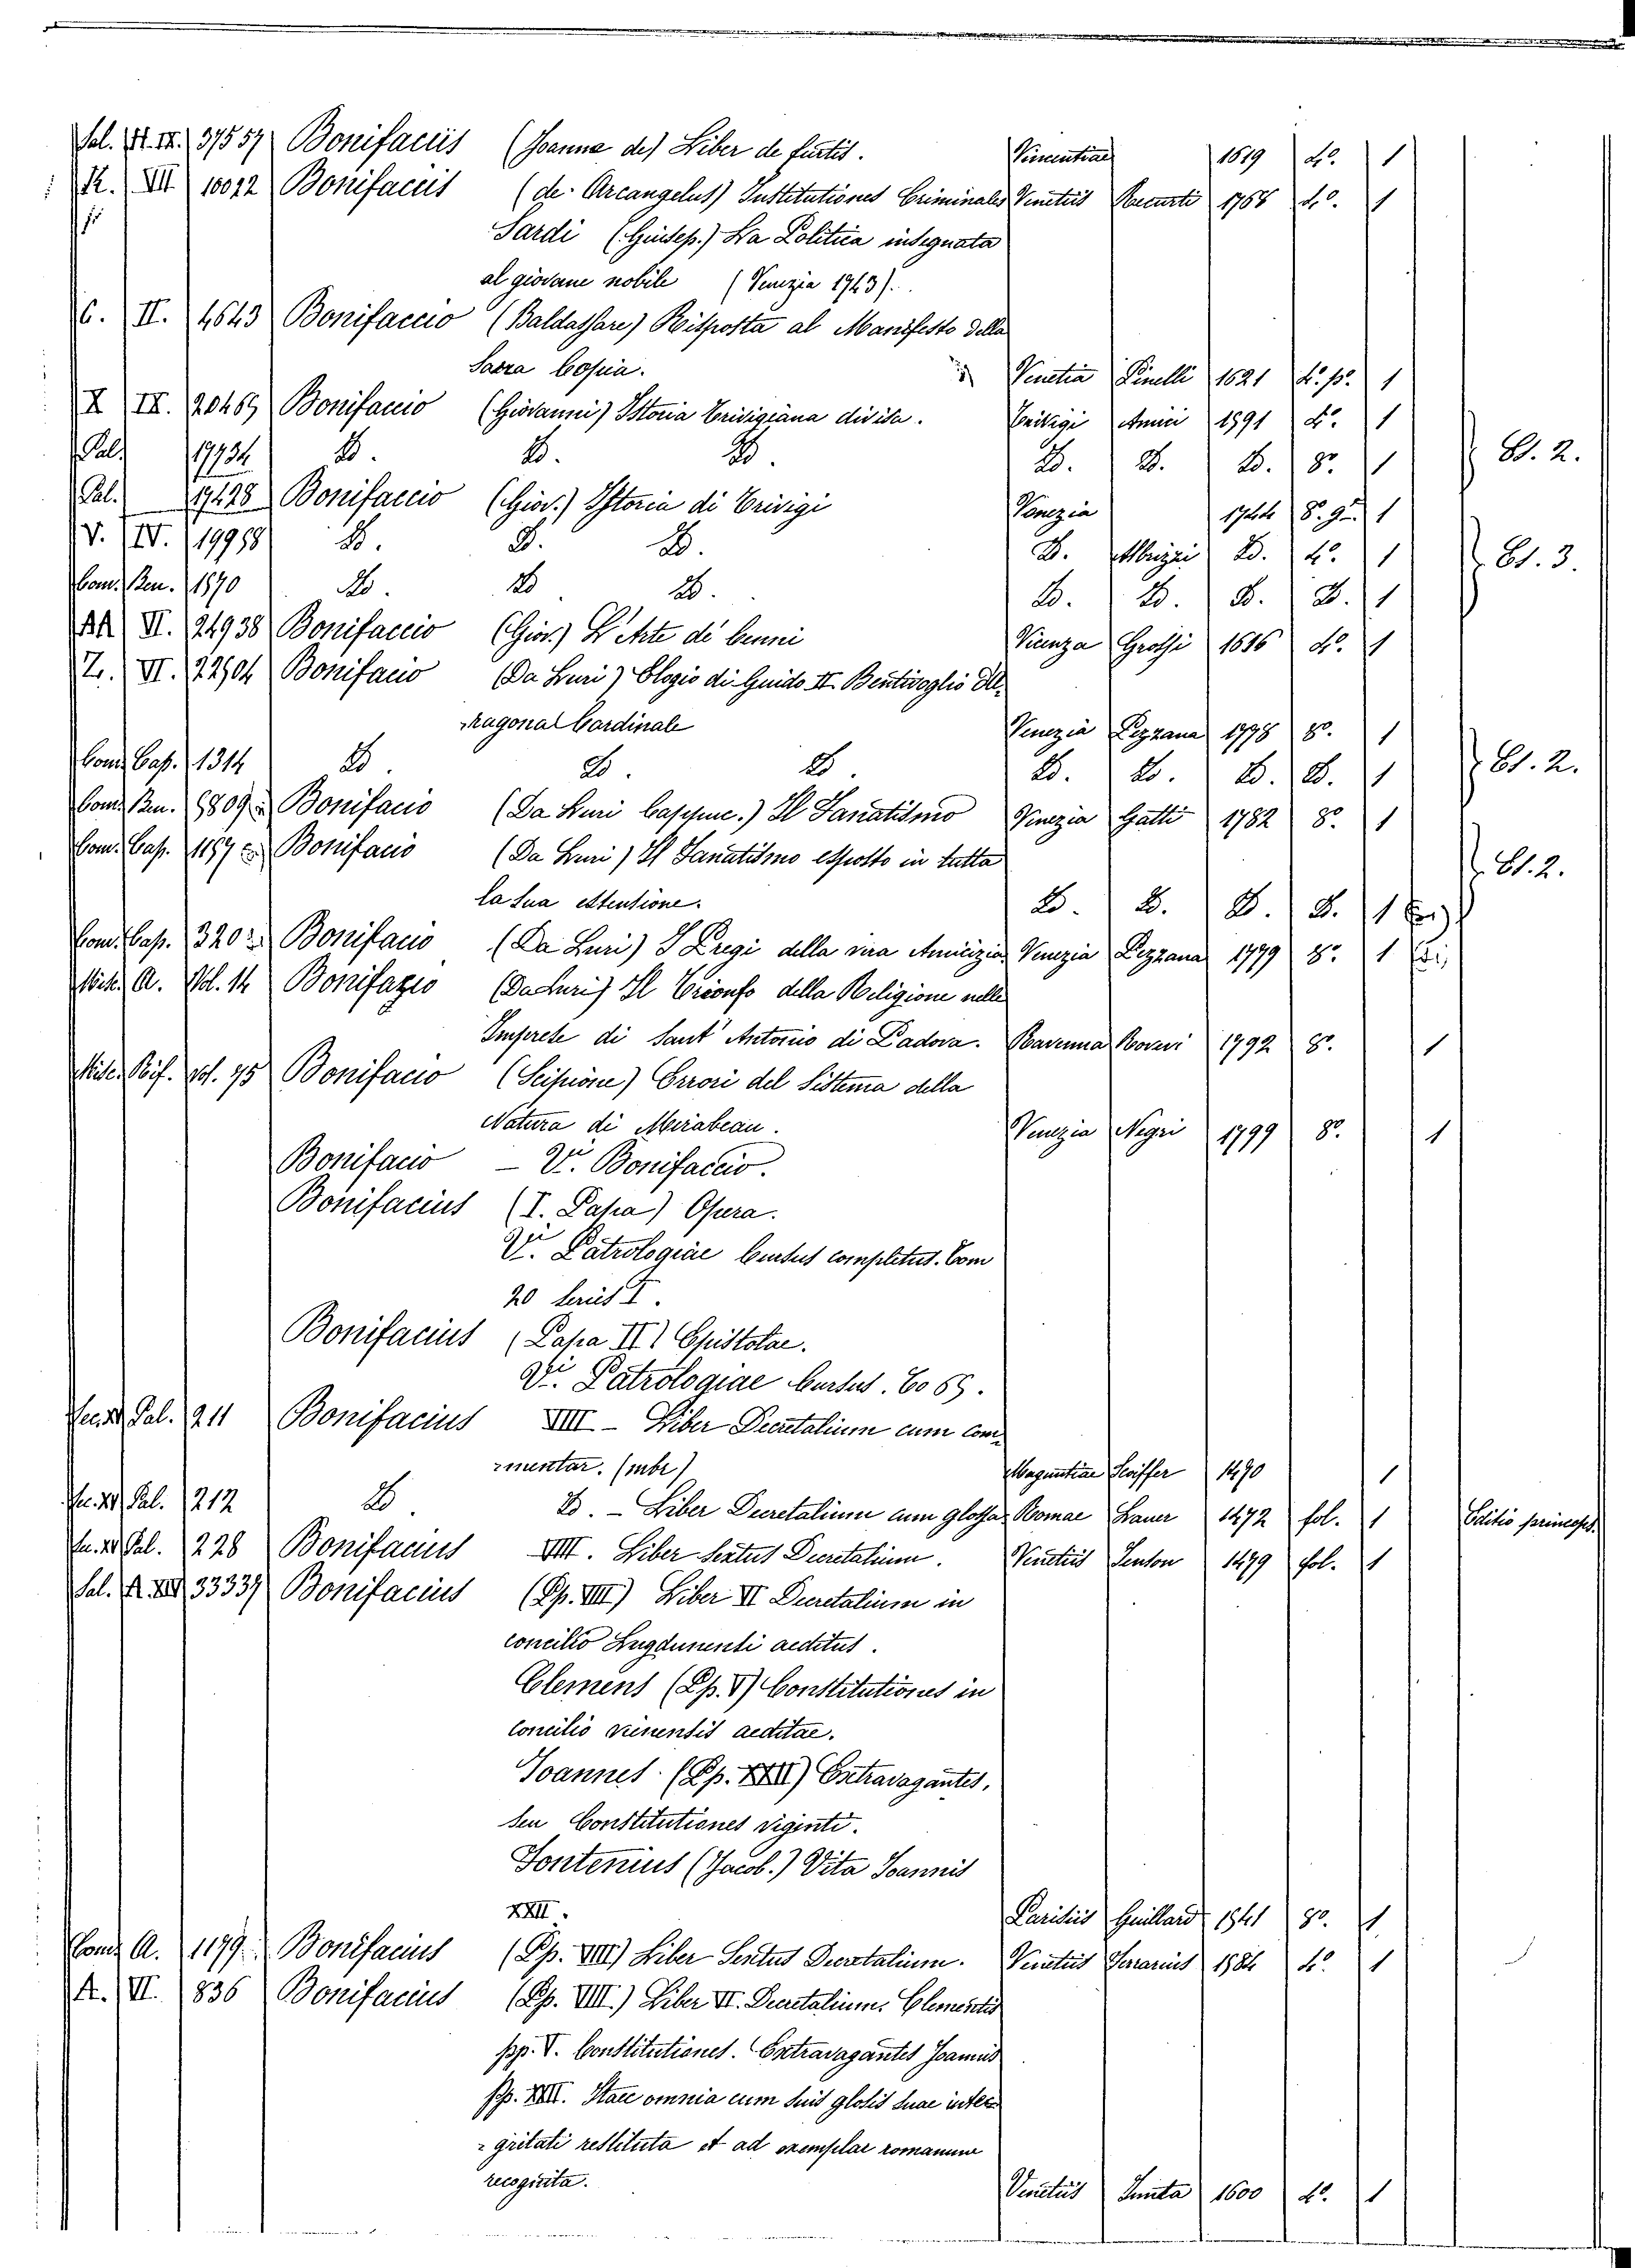 Sal. A. IX. 37557 Bonifaciis (Joanne de) Liber de furtis. Vincentiae 1619 4.º 1
R. VII 10012 Bonifaciis (de Arcangelus) Institutiones Criminales Venetiis Recurti 1768 4.º 1
Sardi (Giusep.) La Politica insegnata
al giovane nobile (Venezia 1763).
C. II. 4643 Bonifaccio (Baldassare) Risposta al Manifesto della
Sacra Copia. Venetia Pinelli 1621 4.º p.º 1
X IX. 20469 Bonifaccio (Giovanni) Istoria Trivigiana divisa. Trivigi Amici 1591 4.º 1
Pal. 17734 D. D. D. D. D. D. 8.º 1 Es. 2.
Pal. 17428 Bonifaccio (Giov.) Istoria di Trivigi Venezia 1744 8.º g.de 1
V. IV. 19958 D. D. D. D. Albrizzi D. 4.º 1 Es. 3.
Com. Ben. 1570 D. D. D. D. D. D. D. 1
AA VI. 24938 Bonifaccio (Giov.) L'Arte de' Cenni Vicenza Grossi 1616 4.º 1
Z. VI. 22904 Bonifacio (Da Luri) Elogio di Guido II. Bentivoglio d'A-
-ragona Cardinale Venezia Pezzana 1778 8.º 1
Com. Cap. 1314 D. D. D. D. D. D. D. 1 Es. 2.
Com. Ben. 5809 Bonifacio (Da Luri Cappuc.) Il Fanatismo Venezia Gatti 1782 8.º 1
Com. Cap. 1157 Bonifacio (Da Luri) Il Fanatismo esposto in tutta
la sua estensione. D. D. D. D. 1 Es. 2.
Com. Cap. 320 Bonifacio (Da Luri) I Pregi della vera Amicizia Venezia Pezzana 1779 8.º 1
Misc. A. Vol. 14 Bonifazio (Da Luri) Il Trionfo della Religione nelle
Imprese di Sant' Antonio di Padova. Ravenna Roveri 1792 8.º 1
Misc. Rif. vol. 95 Bonifacio (Scipione) Errori del Sistema della
Natura di Mirabeau. Venezia Negri 1799 8.º 1
Bonifacio – Vi. Bonifaccio.
Bonifacius (I. Papa) Opera.
Vi. Patrologiae Cursus completus. Tom
20 series I.
Bonifacius (Papa II) Epistolae.
Vi. Patrologiae Cursus. To 65.
Sec. XV Pal. 211 Bonifacius VIII – Liber Decretalium cum com-
-mentar. (mbr) Maguntiae Scoiffer 1470 1
Sec. XV Pal. 212 D. D. – Liber Decretalium cum glossa Romae Lauer 1472 fol. 1 Editio princeps.
Sec. XV Pal. 228 Bonifacius VIII. Liber Sextus Decretalium. Venetiis Jenson 1479 fol. 1
Sal. A. XIV 33337 Bonifacius (Pp. VIII) Liber VI Decretalium in
concilio Lugdunensi aeditus.
Clemens (Pp. V) Constitutiones in
concilio vienensis aeditae.
Joannes (Pp. XXII) Extravagantes,
seu Constitutiones viginti.
Fontenius (Jacob.) Vita Joannis
XXII. Parisiis Guillard 1541 8.º 1
Com. A. 1179 Bonifacius (Pp. VIII) Liber Sextus Decretalium. Venetiis Ferrarius 1584 4.º 1
A. VI. 836 Bonifacius (Pp. VIII.) Liber VI. Decretalium. Clementis
pp. V. Constitutiones. Extravagantes Joannis
Pp. XXII. Haec omnia cum suis glosis suae inte-
-gritati restituta et ad exemplar romanum
recognita. Venetiis Junta 1600 4.º 1